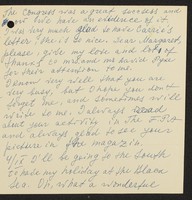 The Congress was a great success and
we have an evidence of it.
I was very much glad to see Carrie's
letter. She is nice. Dear Margaret,
please give my love and lots of
thanks to mr and mrs David Ogie
for their attention to me.
I know very well that you are
very busy, but I hope you don't
forget me, and sometimes will
write to me. I always read
about your activity in The
and always glad to see your
picture in the magazin.
4/IX I'll be going to the South
to have my holiday at the Black
Sea. Oh, what a wonderful